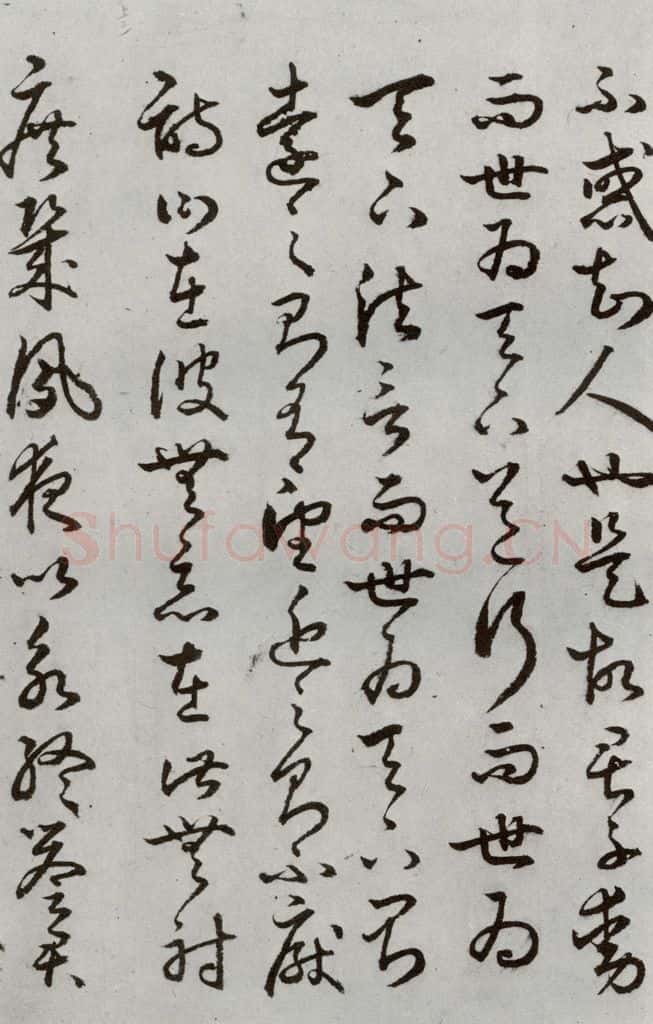 不惑知人也是故君子動
而世為天下道行而世為
天下法言而世為天下則
遠之則有望近之則不厭
詩曰在彼無惡在此無射
庶幾夙夜以永終譽君
Shufawang.CN